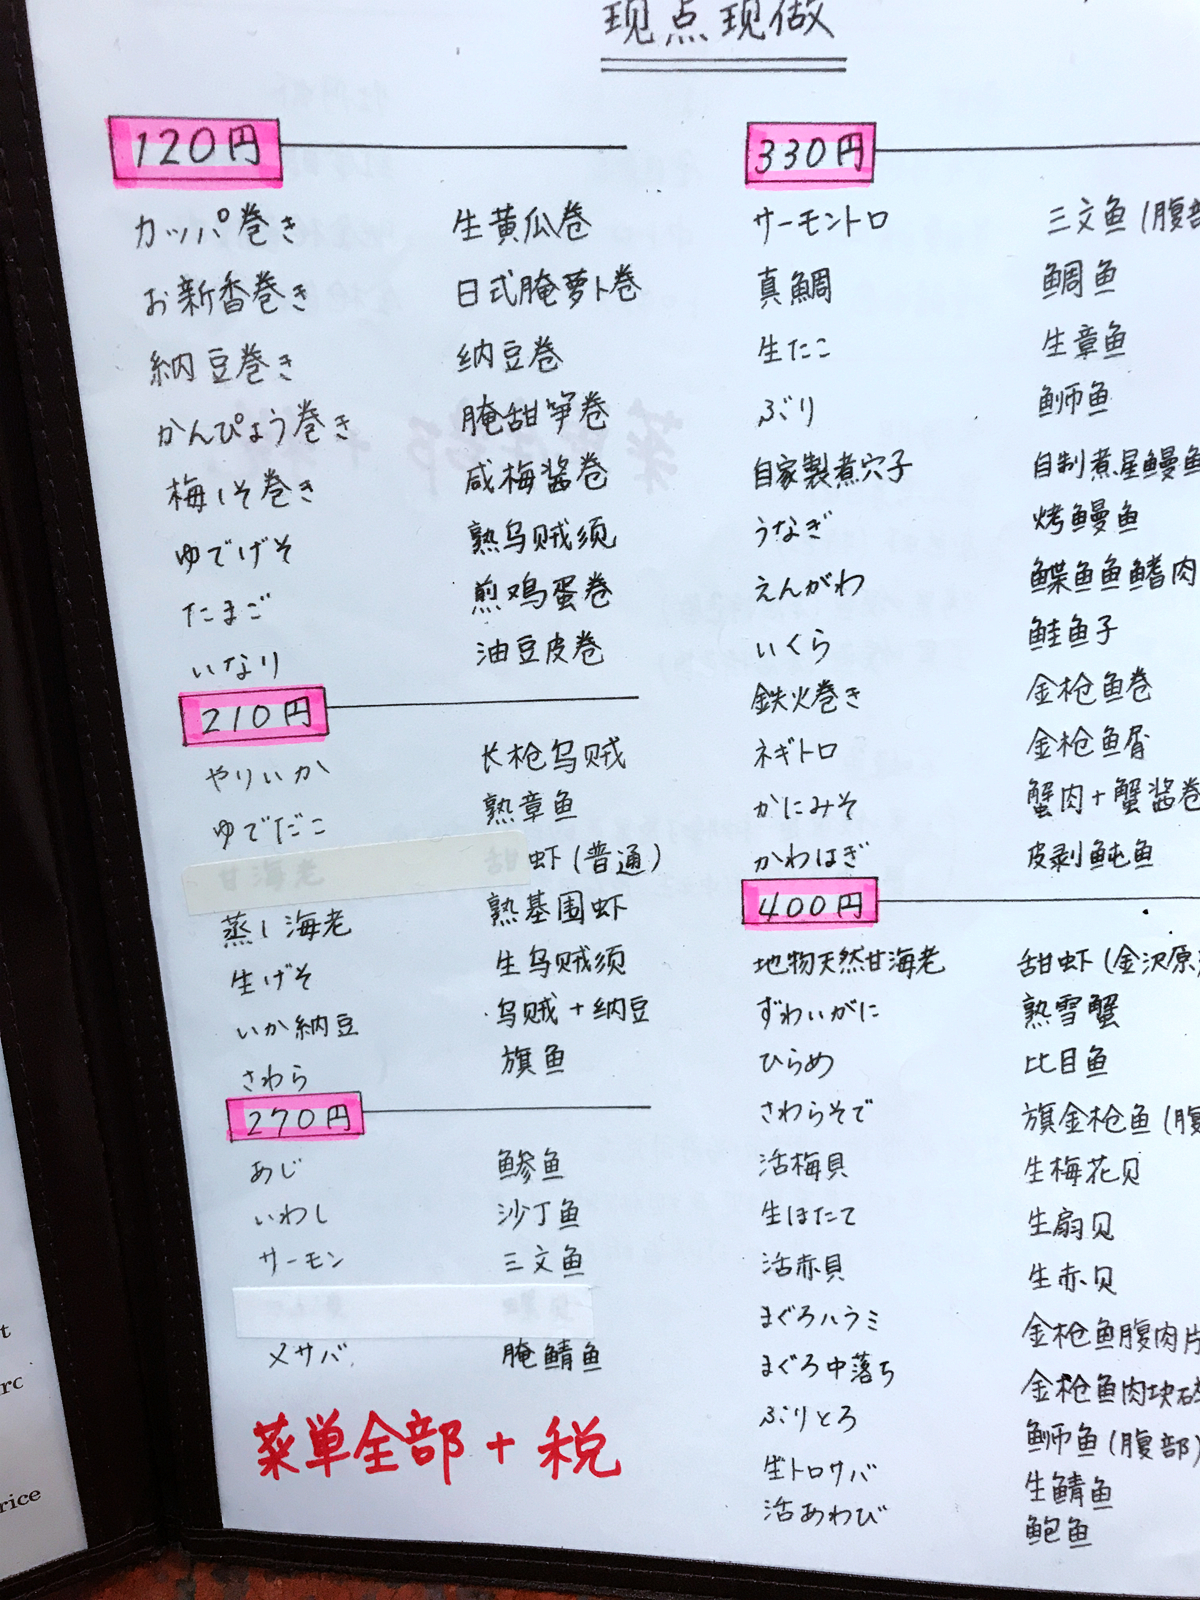 现点现做
120円
カッパ巻き 生黄瓜卷
お新香巻き 日式腌萝卜卷
納豆巻き 纳豆卷
かんぴょう巻き 腌甜笋卷
梅しそ巻き 咸梅酱卷
ゆでげそ 熟乌贼须
たまご 煎鸡蛋卷
いなり 油豆皮卷
210円
やりいか 长枪乌贼
ゆでだこ 熟章鱼
甘海老 甜虾(普通)
蒸し海老 熟基围虾
生げそ 生乌贼须
いか納豆 乌贼+纳豆
さわら 旗鱼
270円
あじ 鲹鱼
いわし 沙丁鱼
サーモン 三文鱼
〆サバ 腌鲭鱼
菜单全部+税
330円
サーモントロ 三文鱼(腹部
真鯛 鲷鱼
生たこ 生章鱼
ぶり 鰤鱼
自家製煮穴子 自制煮星鳗鱼
うなぎ 烤鳗鱼
えんがわ 鲽鱼鱼鳍肉
いくら 鲑鱼子
鉄火巻き 金枪鱼卷
ネギトロ 金枪鱼腐
かにみそ 蟹肉+蟹酱卷
かわはぎ 皮剥鲀鱼
400円
地物天然甘海老 甜虾(金沢原
ずわいがに 熟雪蟹
ひらめ 比目鱼
さわらそで 旗金枪鱼(腹
活梅貝 生梅花贝
生ほたて 生扇贝
活赤貝 生赤贝
まぐろハラミ 金枪鱼腹肉片
まぐろ中落ち 金枪鱼肉块
ぶりとろ 鰤鱼(腹部)
生トロサバ 生鲭鱼
活あわび 鲍鱼
t
rc
rice